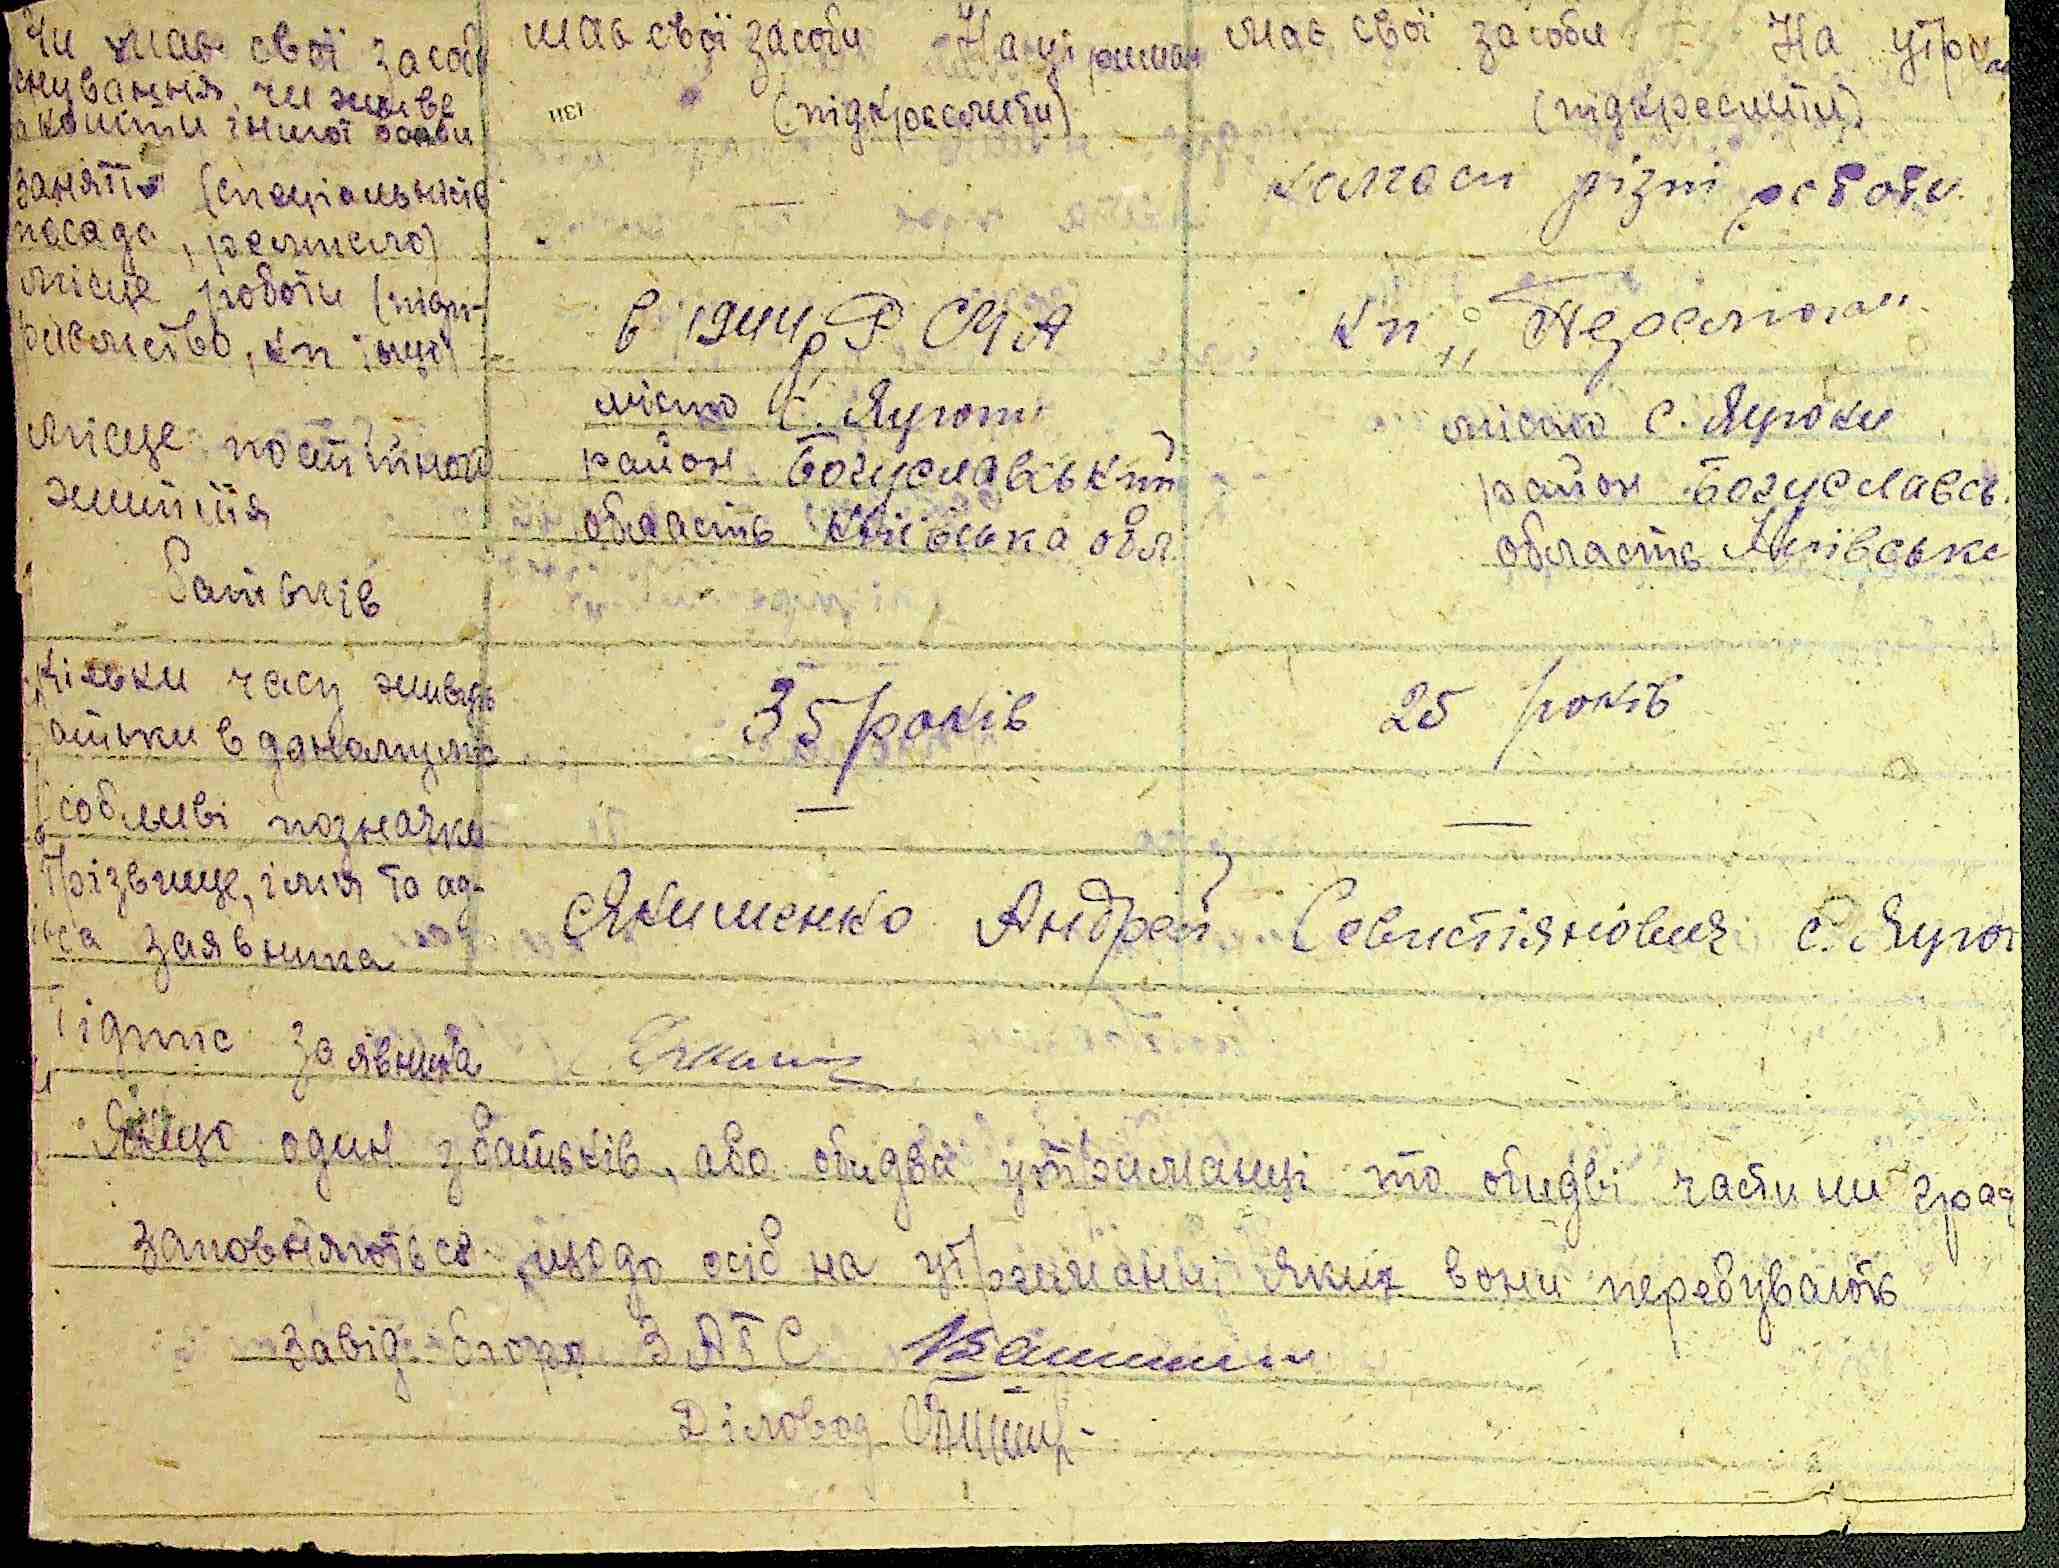 Чи має свої засоб
снування, чи живе
а кошти іншої особи
має свої засоби На утриман
(підкреслити)
має свої засоби На утрим
(підкреслити)
заняття (спеціальність
посада, ремесло)
—
колгосп різні роботи
місце роботи (підп-
риємство, кп інше)
в 1944 р Р СЧА
кп „Перемога"
місце постійного
життя
батьків
місто с. Яцюти
район Богуславський
область Київська обл.
місто с. Яцюки
район Богуславсь.
область Київська
скільки часу живуть
батьки в даному міс
35 років
25 років
Особливі позначки
—
—
Прізвище, імя та ад-
реса заявника
Якименко Андрей Севистіянович с. Яцют
Підпис заявника
Якщо один з батьків, або обидва утриманці то обидві частини граф
заповняються щодо осіб на утриманні яких вони перебувають
Завід. бюро ЗАГС
Діловод